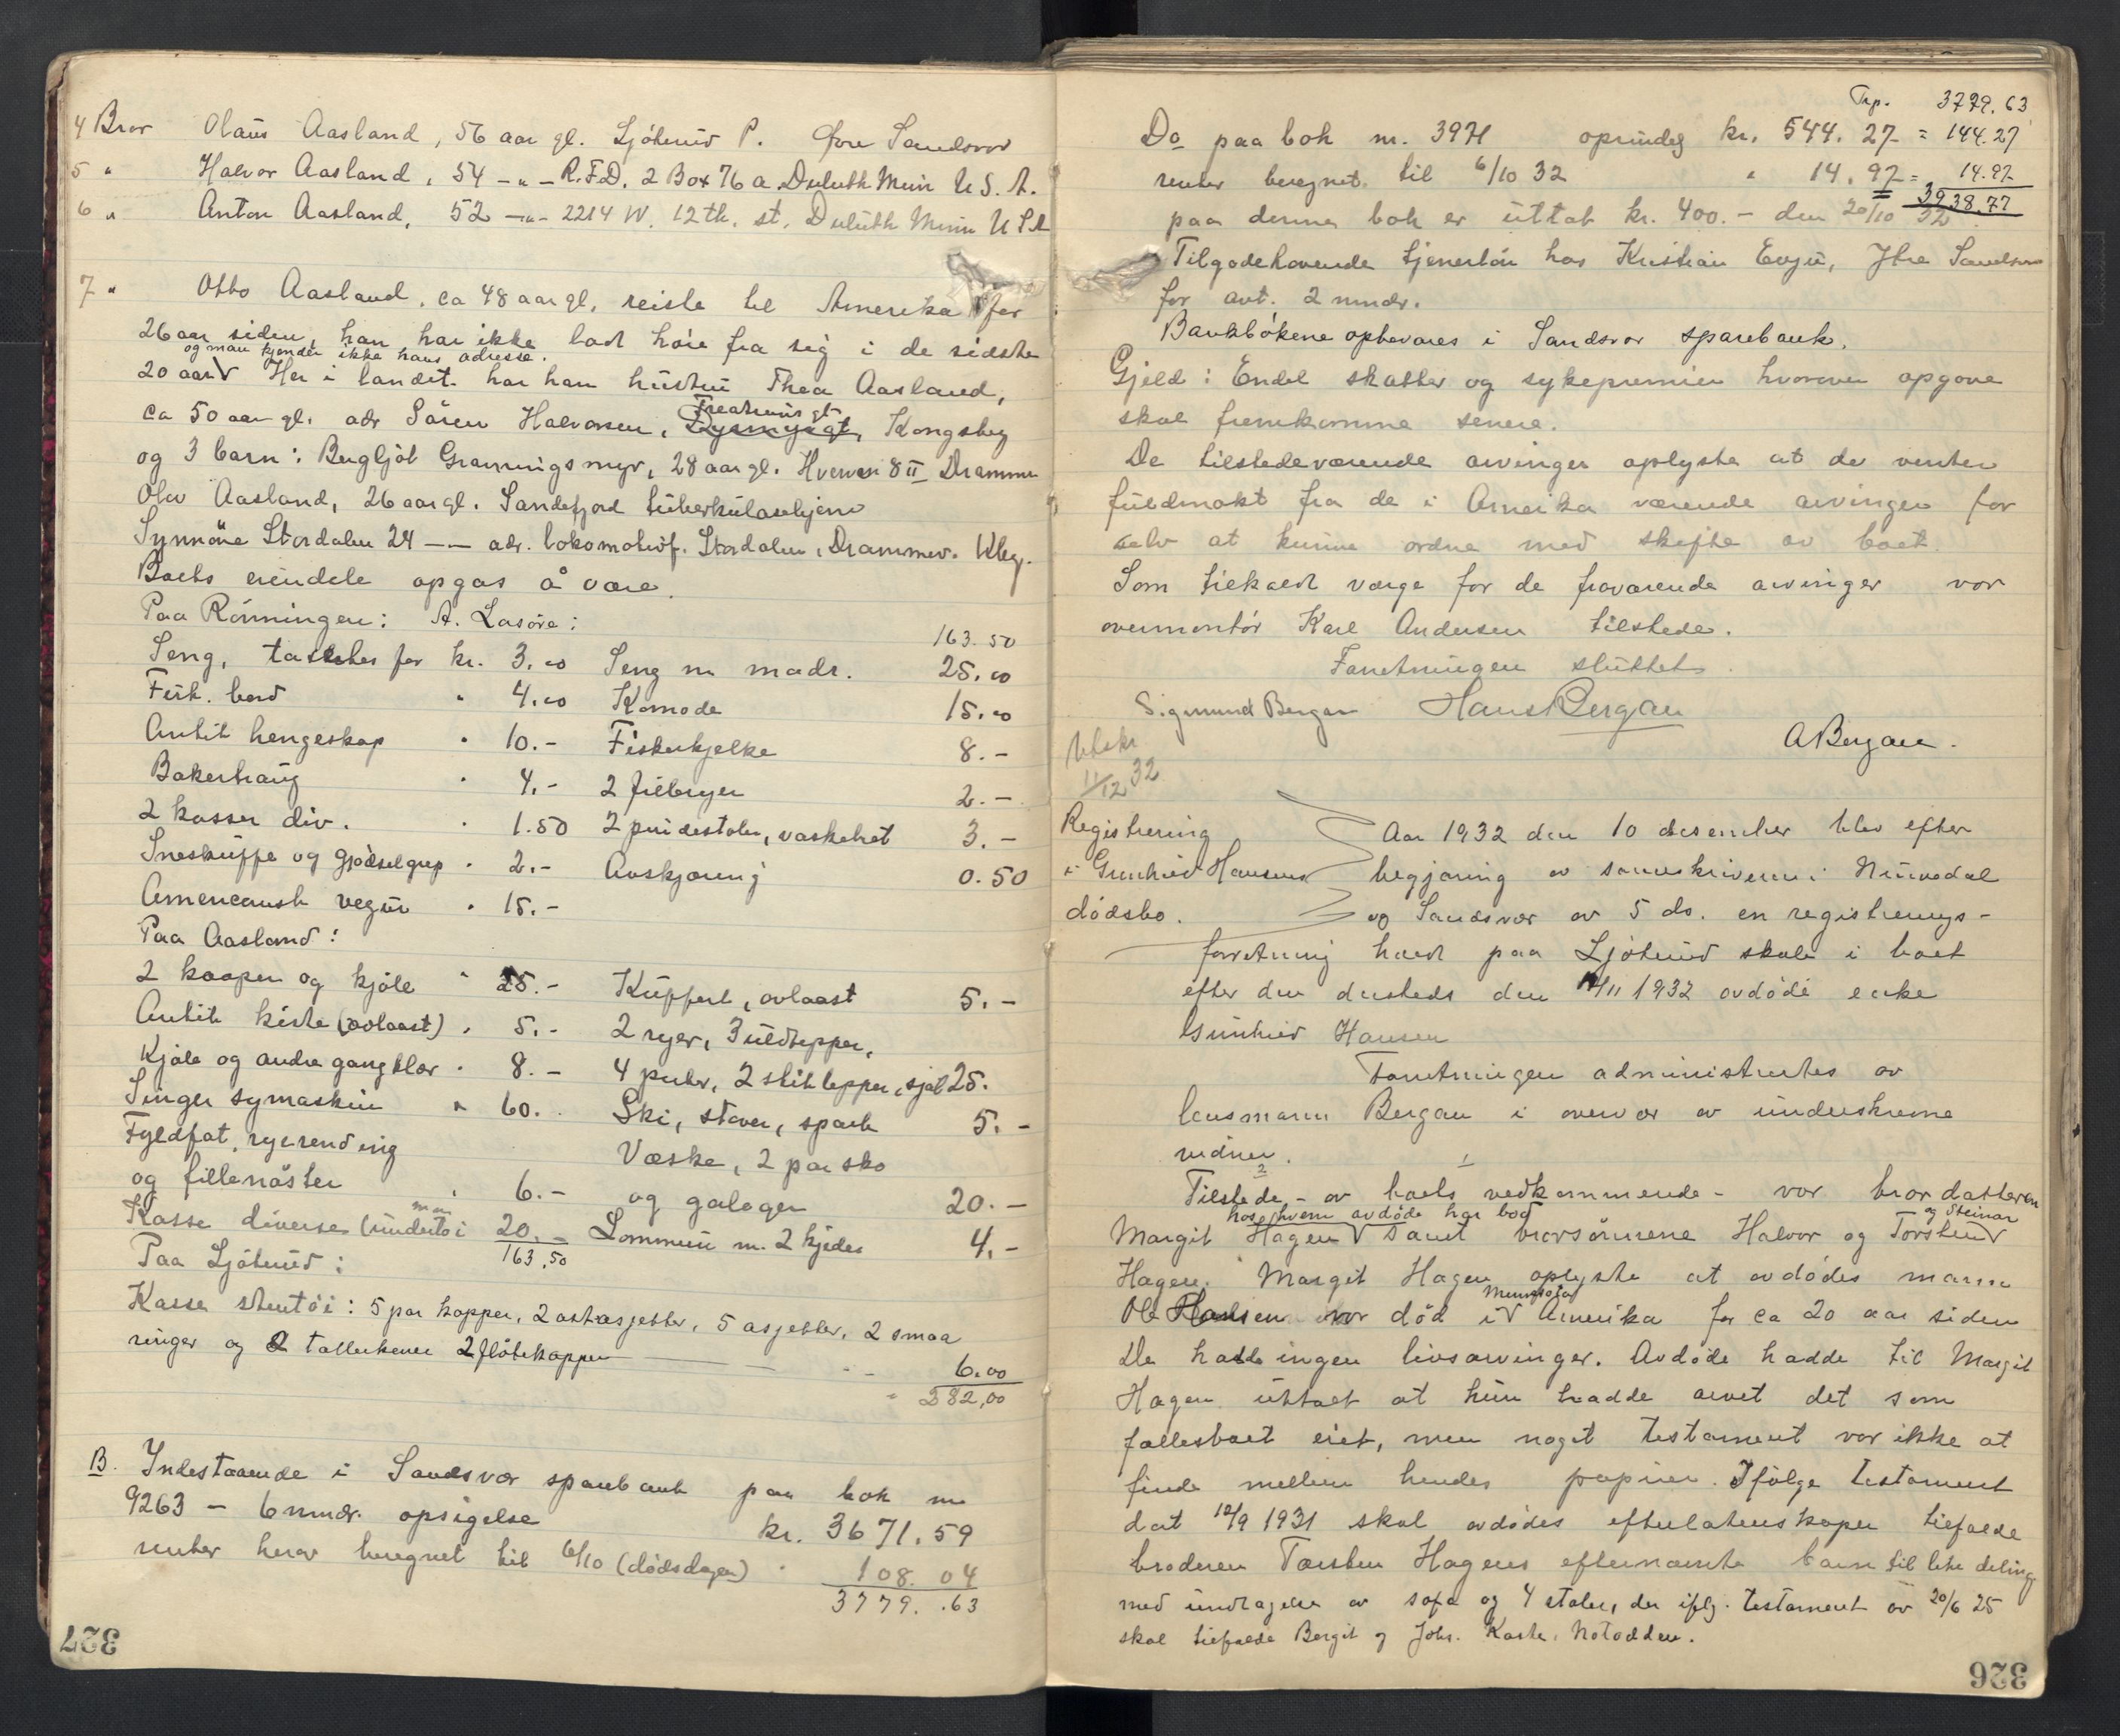 4 Bror Olaus Aasland, 56 aar gl. Ljöterud P. Övre Sandsvær
5 " Halvor Aasland, 54 -"- R.F.D. 2 Box 76 a Duluth Minn U.S.A.
6 " Anton Aasland, 52 -"- 2214 W. 12th. st. Duluth Minn U S A
7 " Otto Aasland, ca 48 aar gl, reiste til Amerika for
26 aar siden, han har ikke latt höre fra sig i de sidste
og man kjender ikke hans adresse.
20 aar V Her i landet har han hustru Thea Aasland,
ca 50 aar gl. adr Sören Halvorsen, Kongsberg
og 3 barn: Bergljot Gramningsmyr, 28 aar gl. Hvervens 8 II Drammen
Olav Aasland, 26 aar gl. Sandefjord tuberkulosehjem
Synnöve Stordalen 24 -"- adr. lokomotivf. Stordalen, Drammensv. Kbg.
Boets eiendele opgas å være.
Paa Rönningen: A. Lösöre:
163.50
Seng, taxertes for kr. 3.00 Seng m madr. 25.00
Firk. bord " 4.00 Komode 15.00
Antik hengeskap " 10.- Fiskekjelke 8.-
Bakertraug " 4.- 2 filleryer 2.-
2 kasser div. " 1.50 2 pindestoler, vaskebret 3.-
Sneskuffe og gjödselgrep " 2.- Avskjæring 0.50
Amerikansk vegur " 15.-
Paa Aasland:
2 kaaper og kjole " 25.- Kuffert, avlaast 5.-
Antik kiste (avlaast) " 5.- 2 ryer, 3 uldtepper,
Kjole og andre gangklær " 8.- 4 puter, 2 stiktepper, sjal 25.
Singer symaskin " 60. Ski, staver, spark 5.-
Fyldfat, ryerending Væske, 2 par sko
og fillenöster " 6.- og galoger 20.-
Kasse diverse (undertöi mm 20.- Lommeur m. 2 kjeder 4.-
Paa Ljöterud: 163,50
Kasse stentöi: 5 par kopper, 2 ostasjetter, 5 asjetter, 2 smaa
ringer og 2 tallerkener 2 flötekopper - - 6.00
" 282,00
B. Indestaaende i Sandsvær sparebank paa bok nr
9263 - 6 mndr. opsigelse kr. 3671.59
renter herav beregnet til 6/10 (dödsdagen) " 108.04
3779.63
327
Trp. 3779.63
Do paa bok nr. 3971 oprindelig kr. 544.27 = 144.27
renter beregnet til 6/10 32 " 14.97 = 14.97
3938.77
paa denne bok er uttat kr. 400.- den 20/10 32.
Tilgodehavende tjenerlön hos Kristian Evju, Ytre Sandsvær
for avt. 2 mndr.
Bankbökene opbevares i Sandsvær sparebank.
Gjeld: Endel skatter og sykepremier hvorover opgave
skal fremkomme senere.
De tilstedeværende arvinger oplyste at de venter
fuldmakt fra de i Amerika værende arvinger for
selv at kunne ordne med skifte av boet.
Som tilkaldt verge for de fraværende arvinger var
overmontör Karl Andersen tilstede.
Forretningen sluttet.
Sigmund Bergan Hans Bergan
A Bergan.
Utskr
11/12 32
Registrering
i Gunhild Hansens
dödsbo.
Aar 1932 den 10 desember blev efter
begjæring av sorenskriveren i Numedal
og Sandsvær av 5 ds. en registrerings-
forretning holdt paa Ljöterud skole i boet
efter den dersteds den /11 1932 avdöde enke
Gunhild Hansen
Forretningen administrertes av
lensmann Bergan i overvær av underskrevne
vidner.
Tilstede - av boets vedkommende - var brordatteren
hos hvem avdöde har bod
og Steinar
Margit Hagen V samt brorsönnene Halvor og Torstein V
Hagen. Margit Hagen oplyste at avdödes mann
Minnesota
Ole Hansen var död i V Amerika for ca 20 aar siden
De hadde ingen livsarvinger. Avdöde hadde til Margit
Hagen uttalt at hun hadde arvet det som
fællesboet eiet, men noget testament var ikke at
finde mellem hendes papirer. Ifölge testament
dat 12/9 1931 skal avdödes efterlatenskaper tilfalde
broderen Torsten Hagens efternævnte barn til like deling
med undtagelse av sofa og 4 stoler, der iflg. testament av 20/6 25
skal tilfalde Bergit og Johs. Kaste, Notodden.
326